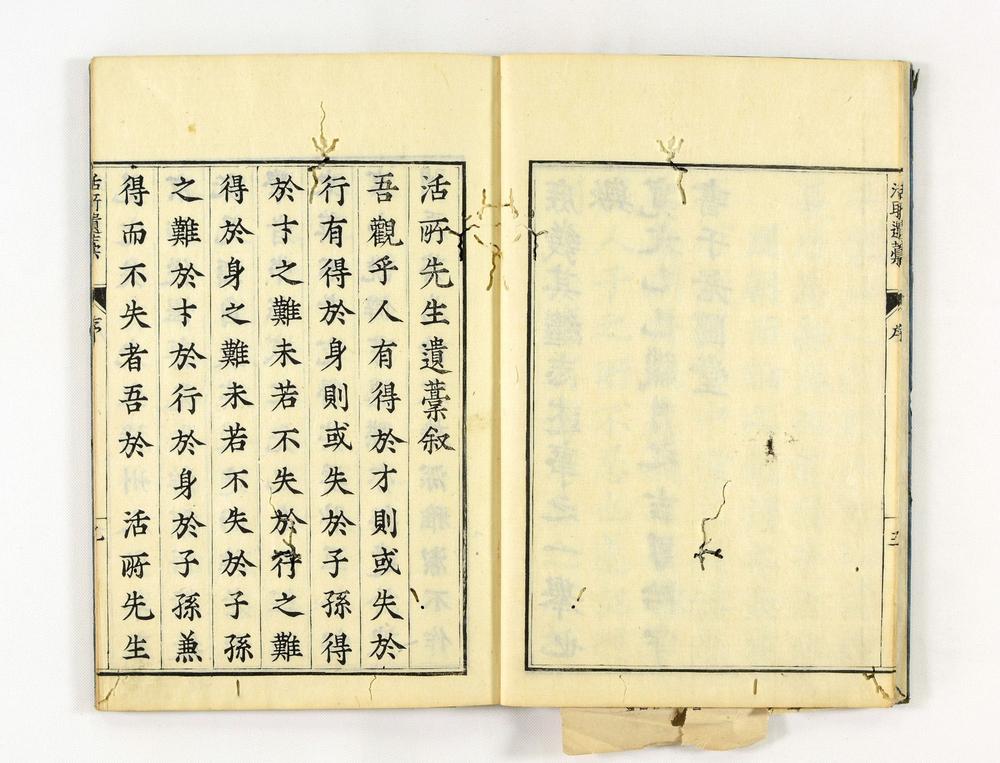 活所先生遺藁叙
吾觀乎人有得於才則或失於
行有得於身則或失於子孫得
於才之難未若不失於行之難
得於身之難未若不失於子孫
之難於才於行於身於子孫兼
得而不失者吾於 活所先生
活所遺藁
序
活所遺藁
序
三